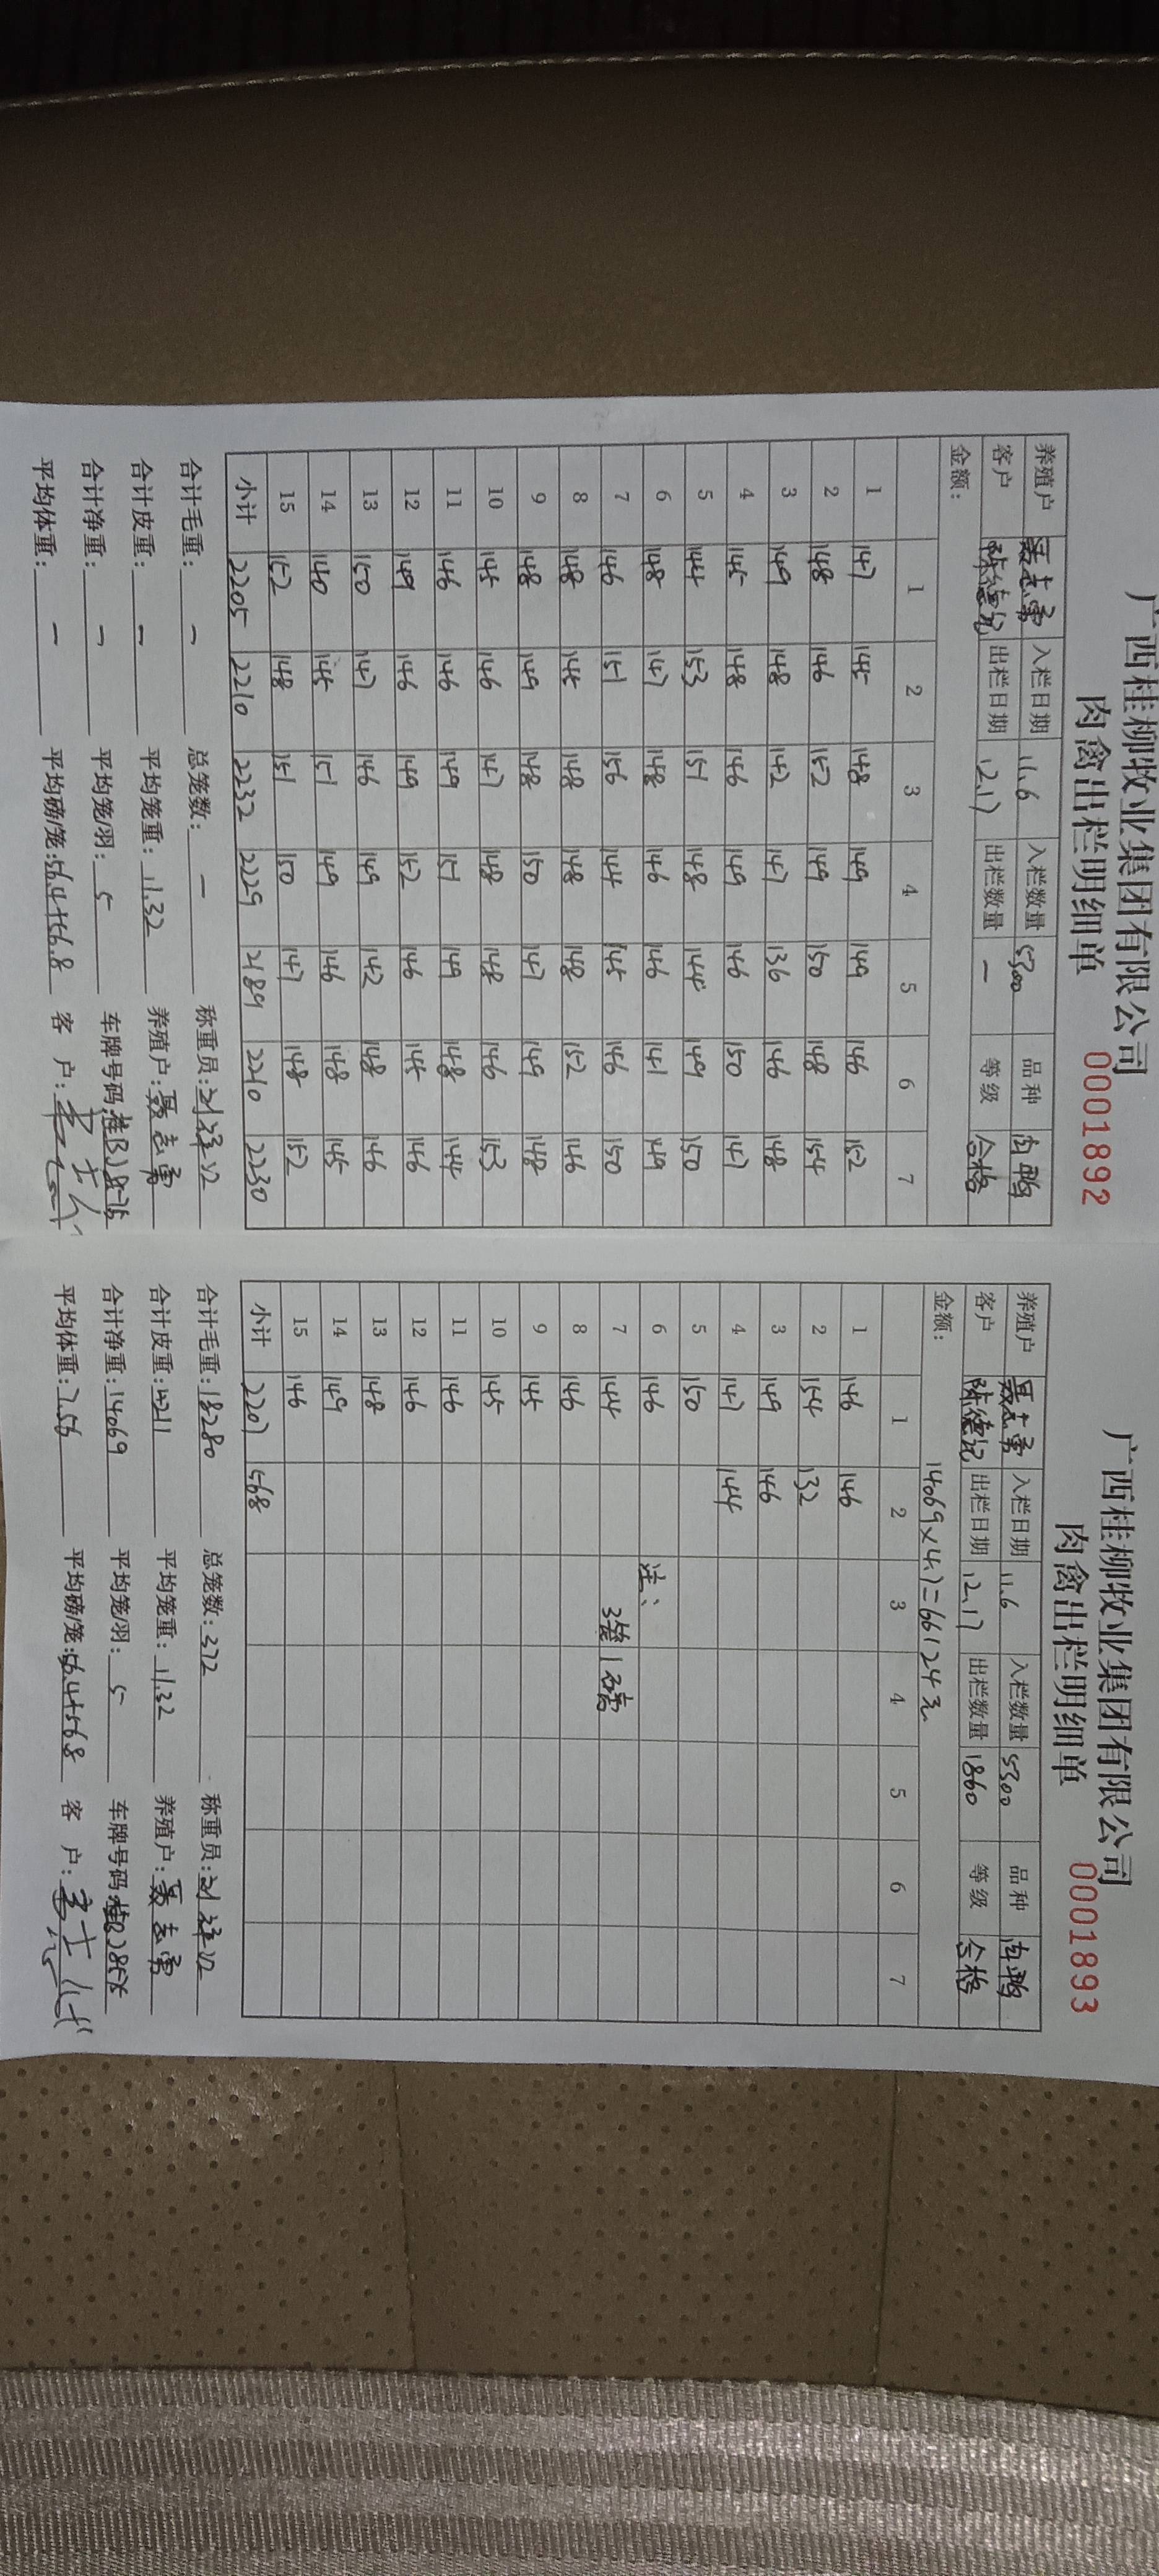 广西桂柳牧业集团有限公司
肉禽出栏明细单 0001892
养殖户 聂志勇 入栏日期 11.6 入栏数量 5300 品种 肉鸭
客户 陈德记 出栏日期 12.17 出栏数量 — 等级 合格
金额:
1 2 3 4 5 6 7
1 147 145 148 149 149 146 152
2 148 146 152 149 150 148 154
3 149 148 142 147 136 146 148
4 145 148 146 149 146 150 147
5 144 153 151 148 144 149 150
6 148 147 148 146 146 141 149
7 146 151 156 144 145 146 150
8 148 144 148 148 148 152 146
9 148 149 148 150 147 149 148
10 145 146 147 148 148 146 153
11 146 146 149 151 149 148 144
12 149 146 149 152 146 144 146
13 150 147 146 149 142 148 146
14 140 145 151 149 146 148 145
15 152 148 151 150 147 148 152
小计 2205 2210 2232 2229 2189 2210 2230
合计毛重: — 总笼数: — 称重员:
合计皮重: — 平均笼重: 11.32 养殖户: 聂志勇
合计净重: — 平均笼/羽: 5 车牌号码:
平均体重: — 平均磅/笼: 56.4+56.8 客 户:
广西桂柳牧业集团有限公司
肉禽出栏明细单 0001893
养殖户 聂志勇 入栏日期 11.6 入栏数量 5300 品种 肉鸭
客户 陈德记 出栏日期 12.17 出栏数量 1860 等级 合格
金额: 14069×4.7=66124元
1 2 3 4 5 6 7
1 146 146
2 154 132
3 149 146
4 147 144
5 150
6 146 注:
7 144 3笼1磅
8 146
9 145
10 145
11 146
12 146
13 148
14 149
15 146
小计 2207 568
合计毛重: 18280 总笼数: 372 称重员:
合计皮重: 4211 平均笼重: 11.32 养殖户: 聂志勇
合计净重: 14069 平均笼/羽: 5 车牌号码:
平均体重: 7.56 平均磅/笼: 56.4+56.8 客 户: